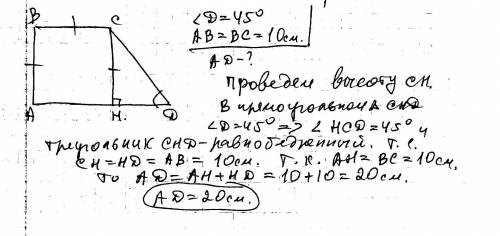 B C
∠D=45°
AB=BC=10см.
AD-?
A H. D
Проведем высоту CH.
В прямоугольном Δ CHD
∠D=45° => ∠HCD=45° и
треугольник CHD-равнобедренный. т.е.
CH=HD=AB=10см. Т.к. AH=BC=10см.
То AD=AH+HD=10+10=20см.
AD=20см.